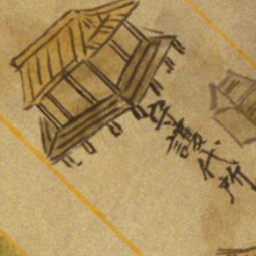 守護代所